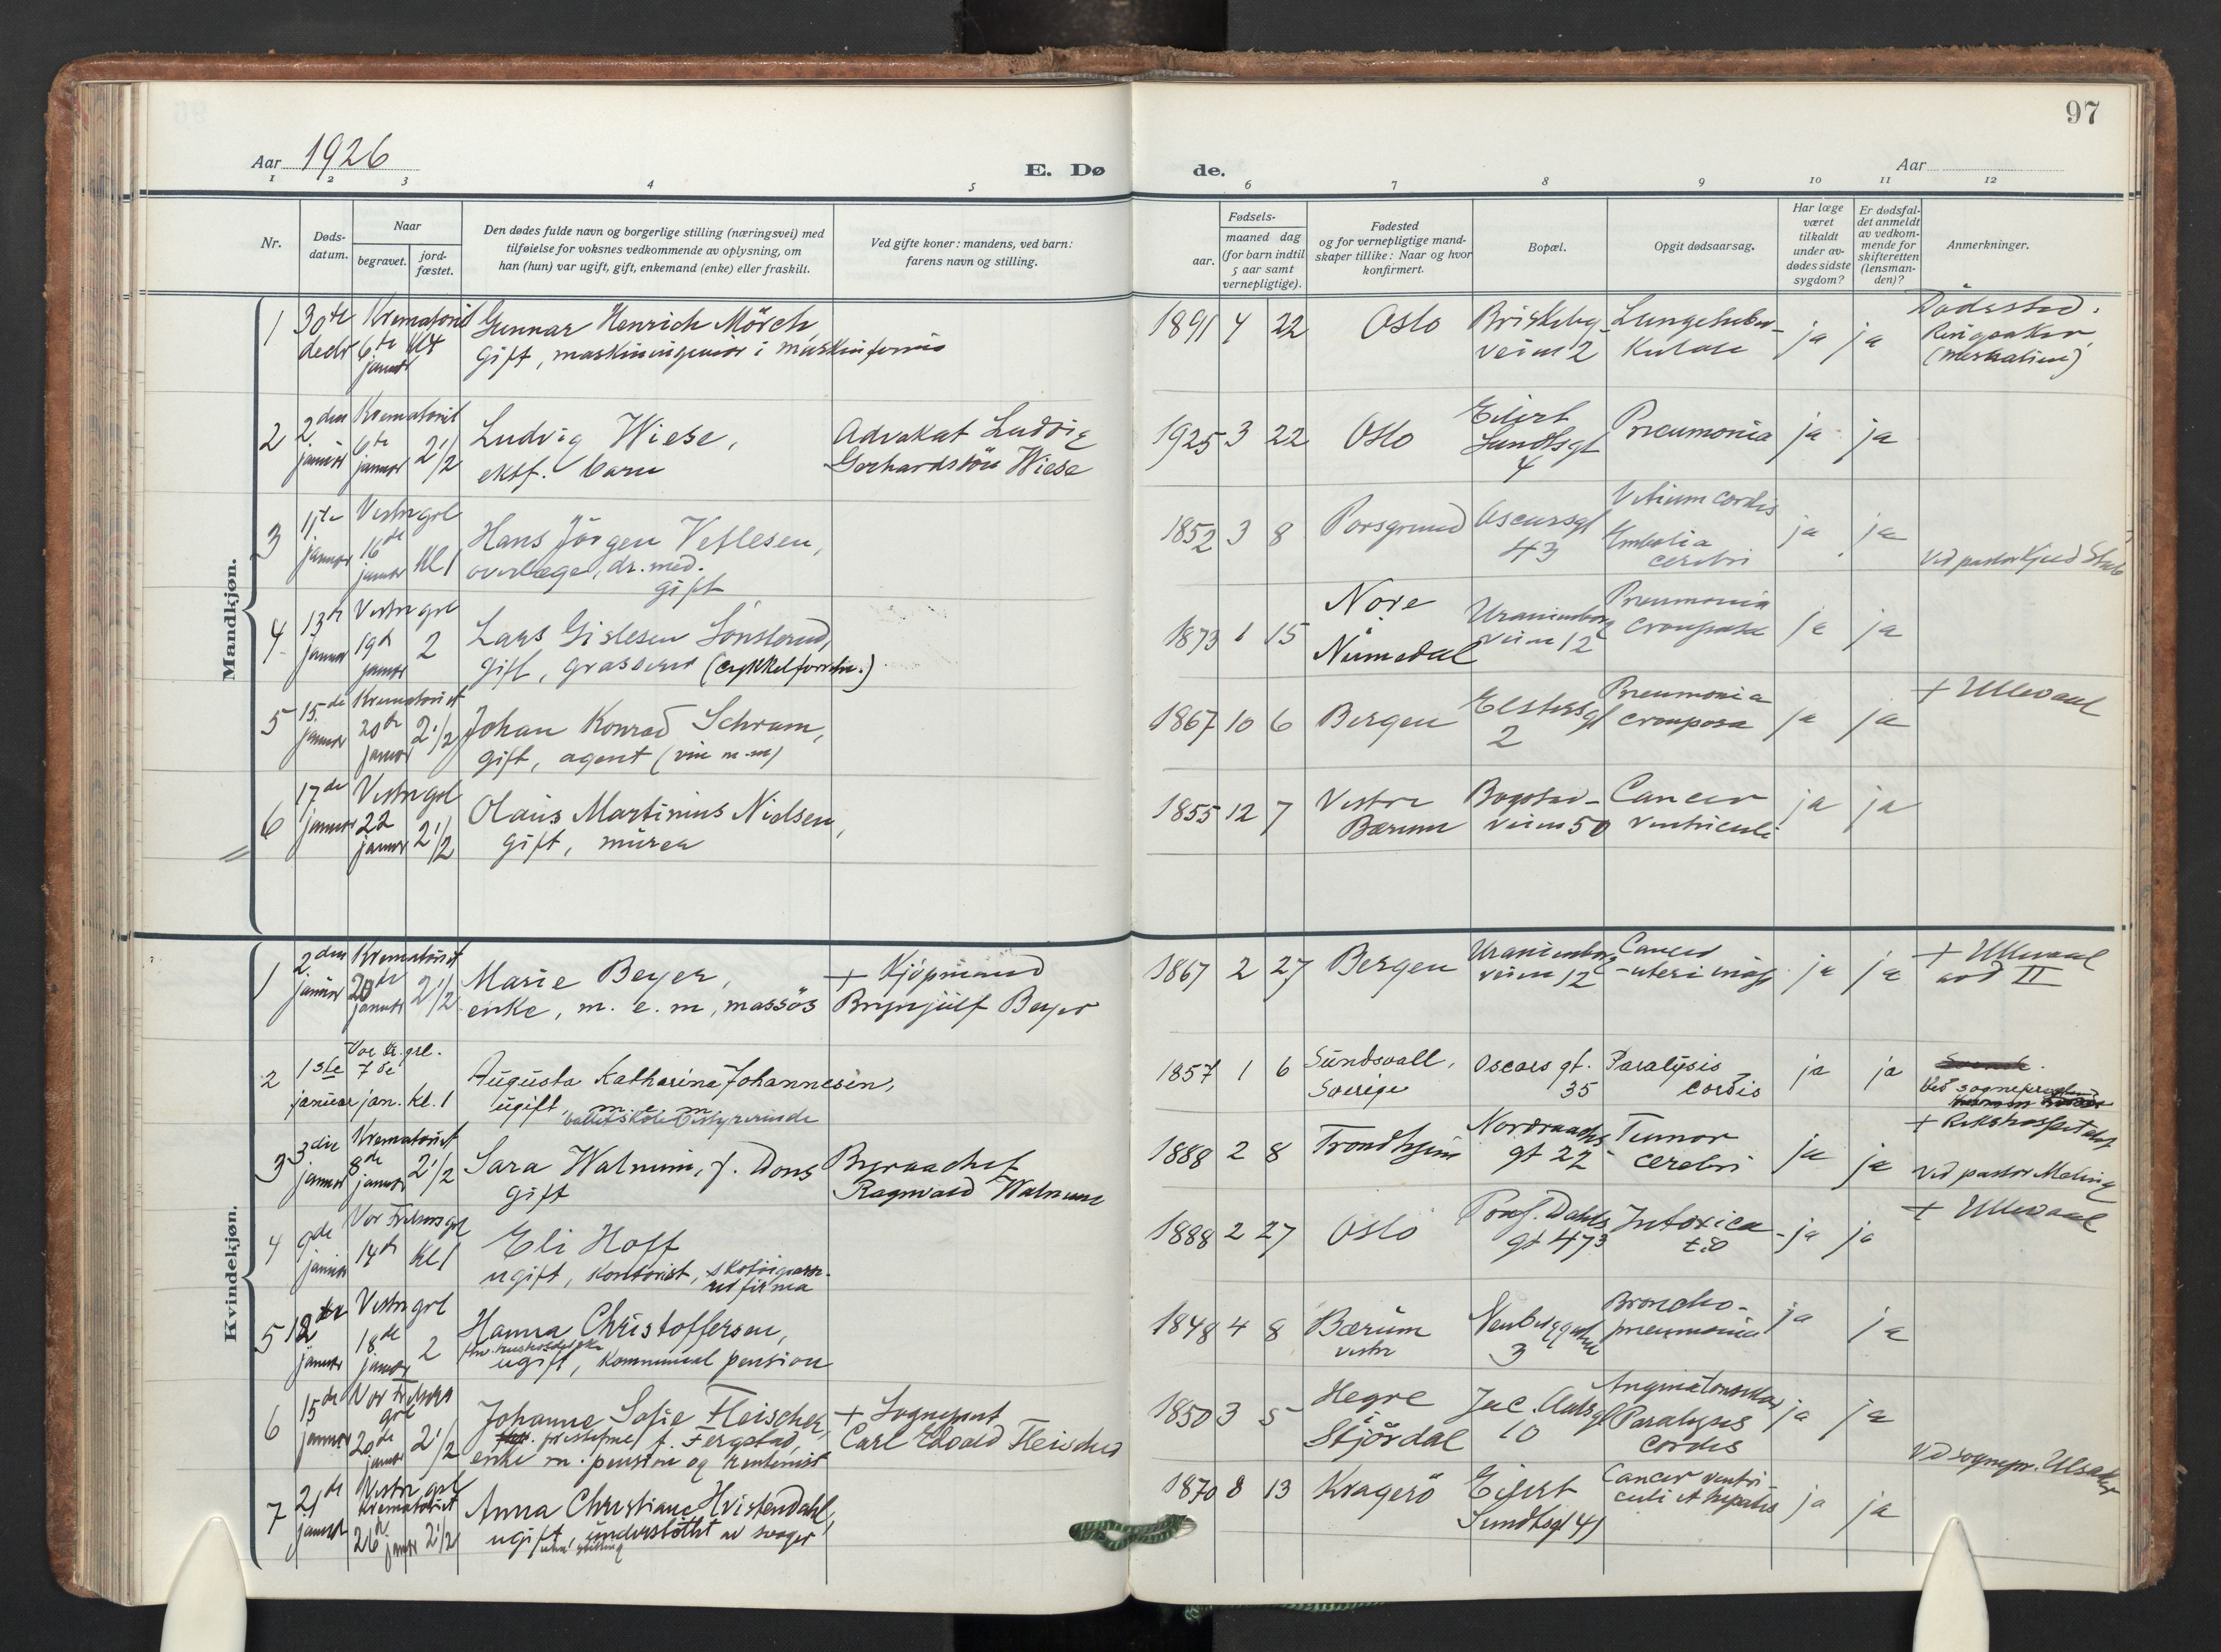 97
Aar 1926
E. Dø
de.
Aar
1 2 3 4 5 6 7 8 9 10 11 12
Nr.
Døds-
datum.
Naar
begravet.
jord-
fæstet.
Den dødes fulde navn og borgerlige stilling (næringsvei) med
tilføielse for voksnes vedkommende av oplysning, om
han (hun) var ugift, gift, enkemand (enke) eller fraskilt.
Ved gifte koner: mandens, ved barn:
farens navn og stilling.
Fødsels-
aar.
maaned dag
(for barn indtil
5 aar samt
vernepligtige).
Fødested
og for vernepligtige mand-
skaper tillike: Naar og hvor
konfirmert.
Bopæl.
Opgit dødsaarsag.
Har læge
været
tilkaldt
under av-
dødes sidste
sygdom?
Er dødsfal-
det anmeldt
av vedkom-
mende for
skifteretten
(lensman-
den)?
Anmerkninger.
Mandkjøn.
1 30te decbr Krematoriet 6te januar
Gunnar Henrich Mörch,
gift, maskiningeniör i maskinfirma
1891 4 22 Oslo
Briskeby-
veien 2
Lungetuber-
kulose
ja ja
Dödssted:
Ringsaker
2 2den januar Krematoriet 6te januar 2 1/2
Ludvig Wiese,
ektf. barn
Advokat Ludvig
Gerhardsön Wiese
1925 3 22 Oslo
Eilert
Sundtsgt
4
Pneumonia ja ja
3 11te januar Vestre grl 16de januar Kl 1
Hans Jörgen Vetlesen,
overlæge, dr. med.
gift
1852 3 8 Porsgrund
Oscarsgt
43
Vitium cordis
Embolia
cerebri
ja ja
Ved pastor
4 13de januar Vestre grl 19de januar 2
Lars Gislesen Sönsterud,
gift, grosserer (cykkelforretn.)
1873 1 15
Nore
i
Numedal
Uranienborg
veien 12
Pneumonia
crouposa
ja ja
5 15de januar Krematoriet 20de januar 2 1/2
Johan Konrad Schram,
gift, agent (vin m.m)
1867 10 6 Bergen
Elstersgt
2
Pneumonia
crouposa
ja ja
+ Ullevaal
6 17de januar Vestre grl 22 januar 2 1/2
Olaus Martinius Nielsen,
gift, murer
1855 12 7
Vestre
Bærum
Bogstad-
veien 50
Cancer
ventriculi
ja ja
Kvindekjøn.
1 2den januar Krematoriet 20de januar 2 1/2
Marie Beyer,
enke, m. e. m, massös
+ Kjöpmand
Brynjulf Beyer
1867 2 27 Bergen
Uranienborg
veien 12
Cancer
uteri
ja ja
+ Ullevaal
avd II
2 1ste januar Vor Fr. grl. 7de jan. kl. 1
Augusta Katharina Johannesen,
ugift, m. e. m
balletskole bestyrerinde
1857 1 6
Sundsvall,
Sverige
Oscars gt.
35
Paralysis
cordis
ja ja
3 3die januar Krematoriet 8de januar 2 1/2
Sara Walnum, f. Dons
gift
Byraachef
Ragnvald Walnum
1888 2 8 Trondhjem
Nordraachs
gt 22
Tumor
cerebri
ja ja
+ Rikshospitalet
Ved pastor Maling
4 9de januar Vor Frelsers grl 14de Kl 1
Eli Hoff
ugift, kontorist,
1888 2 27 Oslo
Prof. Dahls
gt 47
Intoxica-
tio
ja ja
+ Ullevaal
5 12te januar Vestre grl 18de januar 2
Hanna Christoffersen,
ugift, kommunal pension
1848 4 8
Bærum
vestre
Neuberggaten
3
Broncho-
pneumonia
ja ja
6 15de januar Vor Frelsers grl 20de januar 2 1/2
Johanne Sofie Fleischer,
f. Fergstad,
enke m. pension og rentenist
+ Sogneprest
Carl Edvald Fleischer
1850 3 5
Hegre
i
Stjördal
Jac. Aalsgt
10
Angina tonsillar
Paralysis
cordis
ja ja
7 21de januar Vestre grl Krematoriet 26de januar 2 1/2
Anna Christiane Hvistendahl,
ugift, understöttet av svoger
uten stilling
1870 8 13 Kragerö
Eilert
Sundtsgt 41
Cancer ventri-
culi et hepatis
ja ja
Ved sognepr. Ulsaker